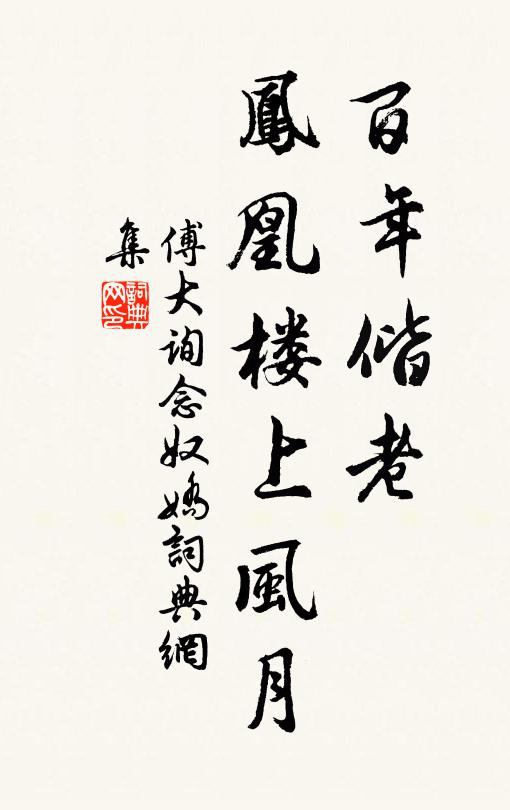 百年偕老
鳳凰楼上風月
傅大询念奴嬌詞典網
集
詞典
网印